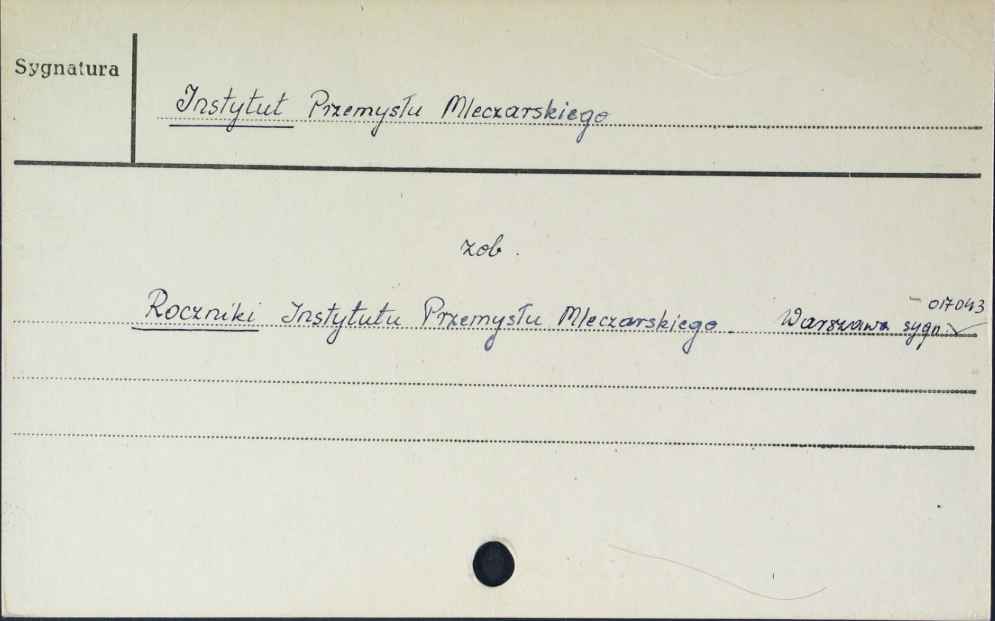 Sygnatura
Instytut Przemysłu Mleczarskiego
zob.
Roczniki Instytutu Przemysłu Mleczarskiego. Warszawa sygn. 017043